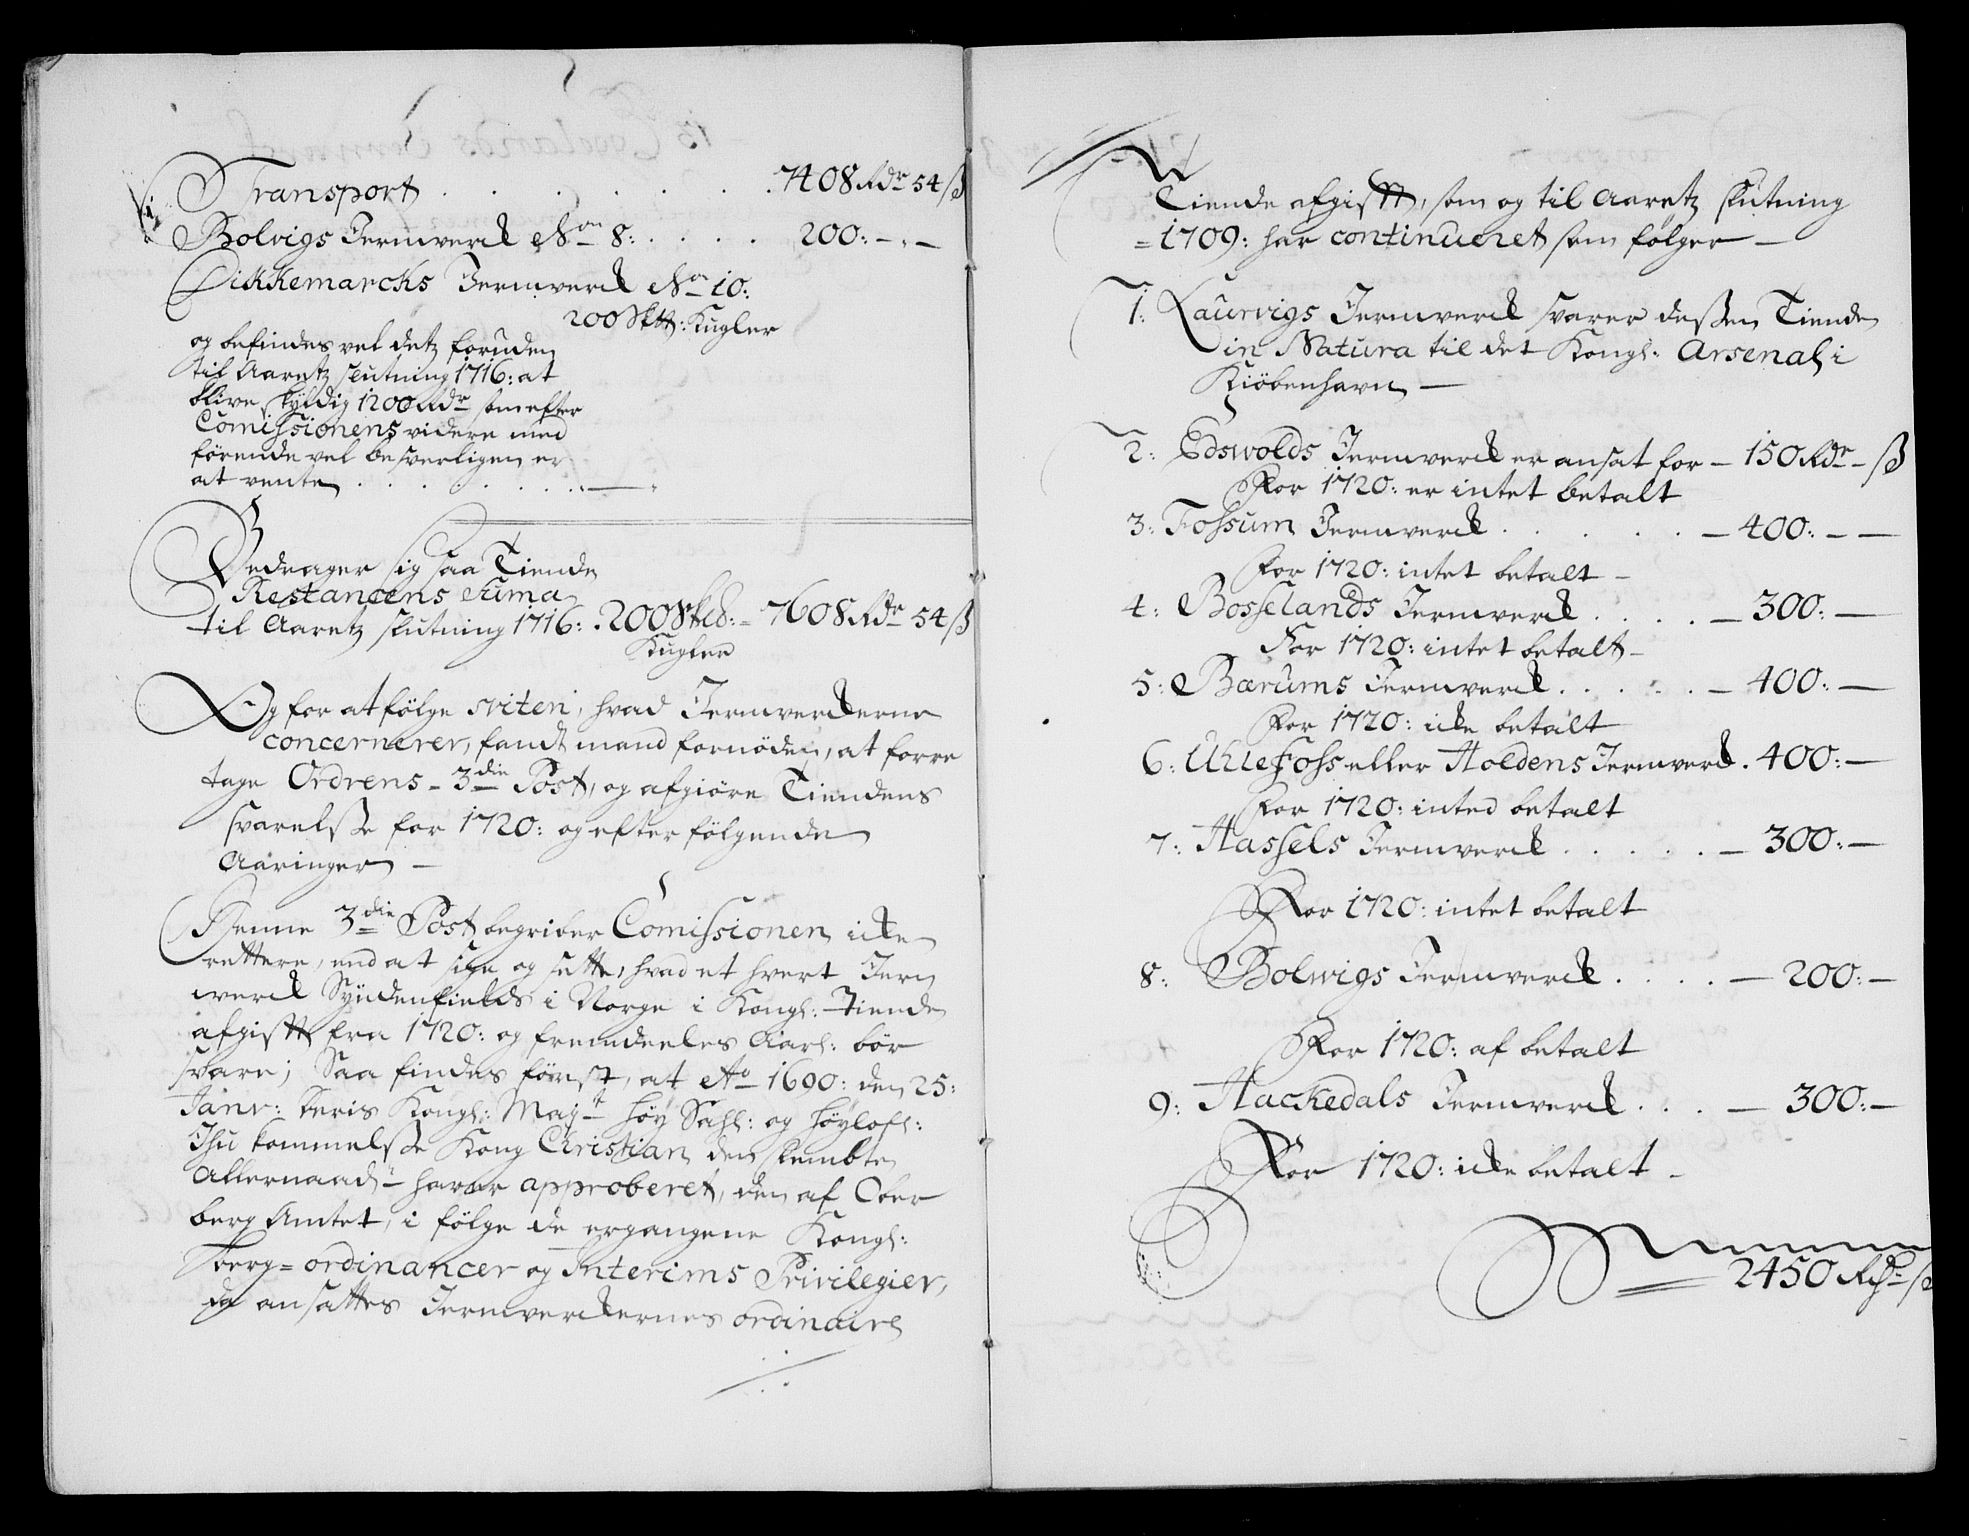 Transport . . . . . . . 7408 Rdr 54 ß
Bolvigs Jernverck No 8: . . . . 200: - . -
Dikkemarcks Jernverck No 10:
200 Sktt: Kugler
og befindes vel detz foruden
til Aaretz slutning 1716: at
blive skyldig 1200 Rdr som efter
Comissionens videre med
førende vel besverligen er
at vente . . . . . . .
Bedrager sig saa Tiende
Restancens Suma
til Aaretz slutning 1716: . 200 Skb: - 7608 Rdr 54 ß
Kugler
Og for at følge sviten, hvad Jernverckerne
concernerer, fandt mand fornøden, at forre
tage Ordrens - 3die Post, og afgiøre Tiendens
svarelsse for 1720: og efterfølgende
Aaringer -
Denne 3die Post begriber Comissionen icke
rettere, end at sige og sette, hvad et hvert Jern
werck Syndenfields i Norge i Kongl: Tiende
afgifft fra 1720: og fremdeeles Aarl: bør
svare; Saa findes først, at Ao 1690: den 25:
Janv: deris Kongl: Mayt høy Sahl: og høylofl:
Ihu kommelsse Kong Christian den fembte
Allernaadt haver approberet, den af Ober
berg Amtet, i følge de ergangene Kongl:
berg = ordinancer og Interims Privilegier,
da ansattes Jernverckernes ordinaire
Tiende afgifft, som og til Aaretz slutning
= 1709: har continueret som følger -
1: Laurvigs Jernverck svarer dessen Tiende
in Natura til det Kongl: Arsenal i
Kiöbenhavn -
2: Edswolds Jernverck er ansat for - 150 Rdr - ß
For 1720: er intet betalt
3: Fossum Jernverck . . . . . - 400: - -
For 1720: intet betalt -
4: Bosselands Jernverck . . . . - 300: -
For 1720: intet betalt -
5: Bærums Jernverck . . . . . - 400: -
For 1720: icke betalt
6: Uhlefoss eller Holdens Jernverck . 400: -
For 1720: inted betalt
7: Hassels Jernverck . . . . . - 300: -
For 1720: intet betalt
8: Bolwigs Jernverck . . . . - 200: -
For 1720: af betalt
9: Hackedals Jernverck . . . - 300: -
For 1720: icke betalt -
2450 Rdr - ß